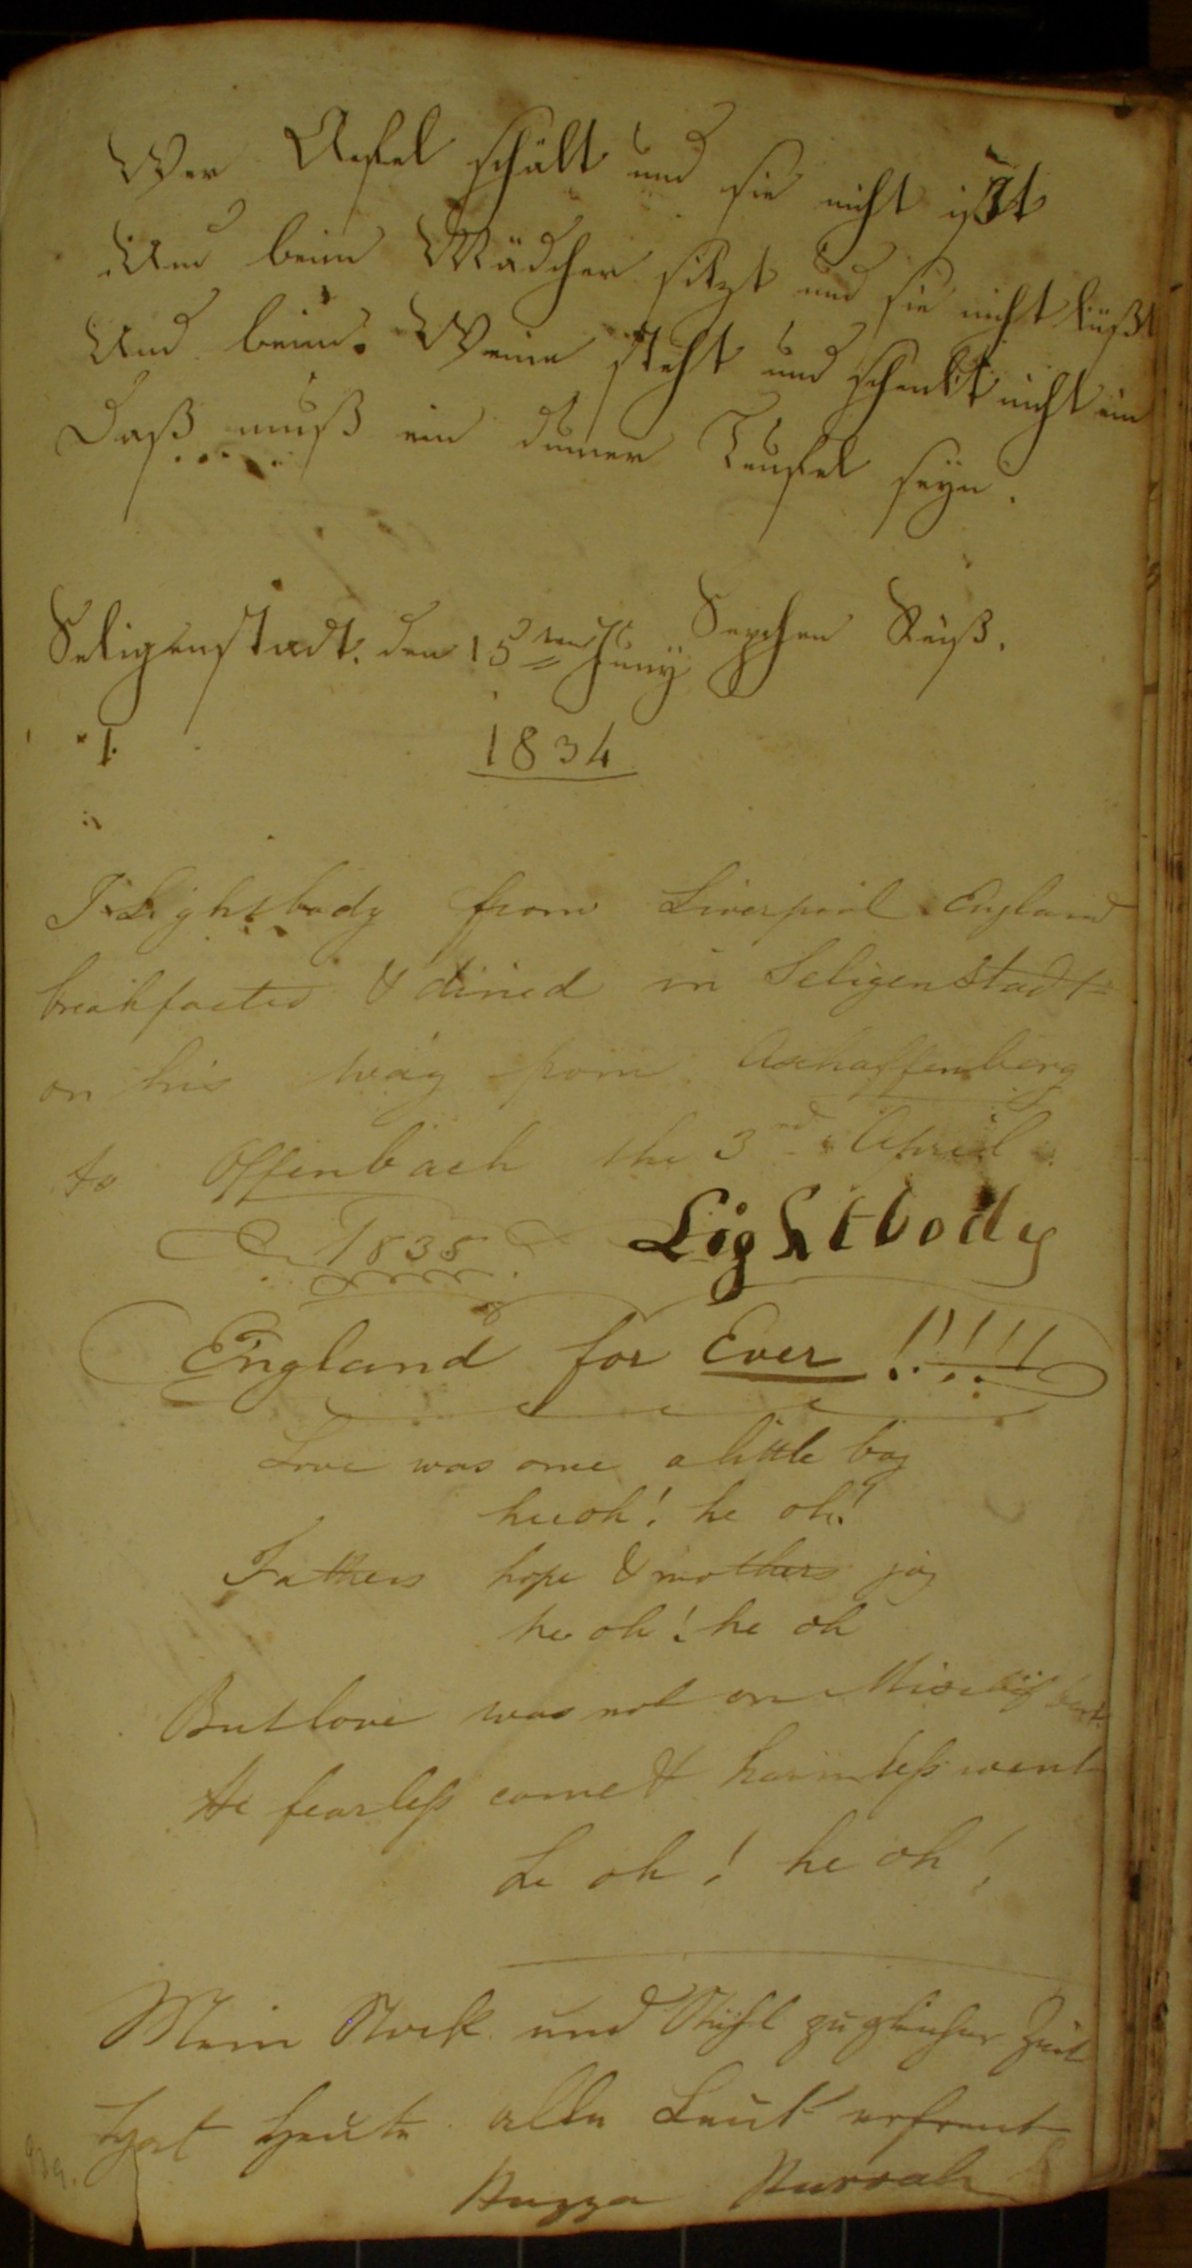 Wer Aepfel schält und sie nicht ißt
Und beim Mädchen sitzt und sie nicht küßt
Und beim Weine steht und schenkt nicht ein
Daß muß ein dumer Teufel seyn.
Seligenstadt. den 15ten Juny Sepchen Reiß.
1834
J Lightbody from Liverpool England
breakfasted & dined in Seligenstadt
on his way from Aschaffenberg
to Offenbach the 3rd April
1835 Lightbody
England for Ever !!!!!
Love was once a little boy
heeoh! he oh!
Fathers hope & mothers joy
he oh! he oh
But love was not on Mischif bent
He fearless came & harmless went
he oh! he oh!
Mein Stock und Stuhl zugleicher Zeit
hat heute alle Leut erfreut
Huzza Hurrah